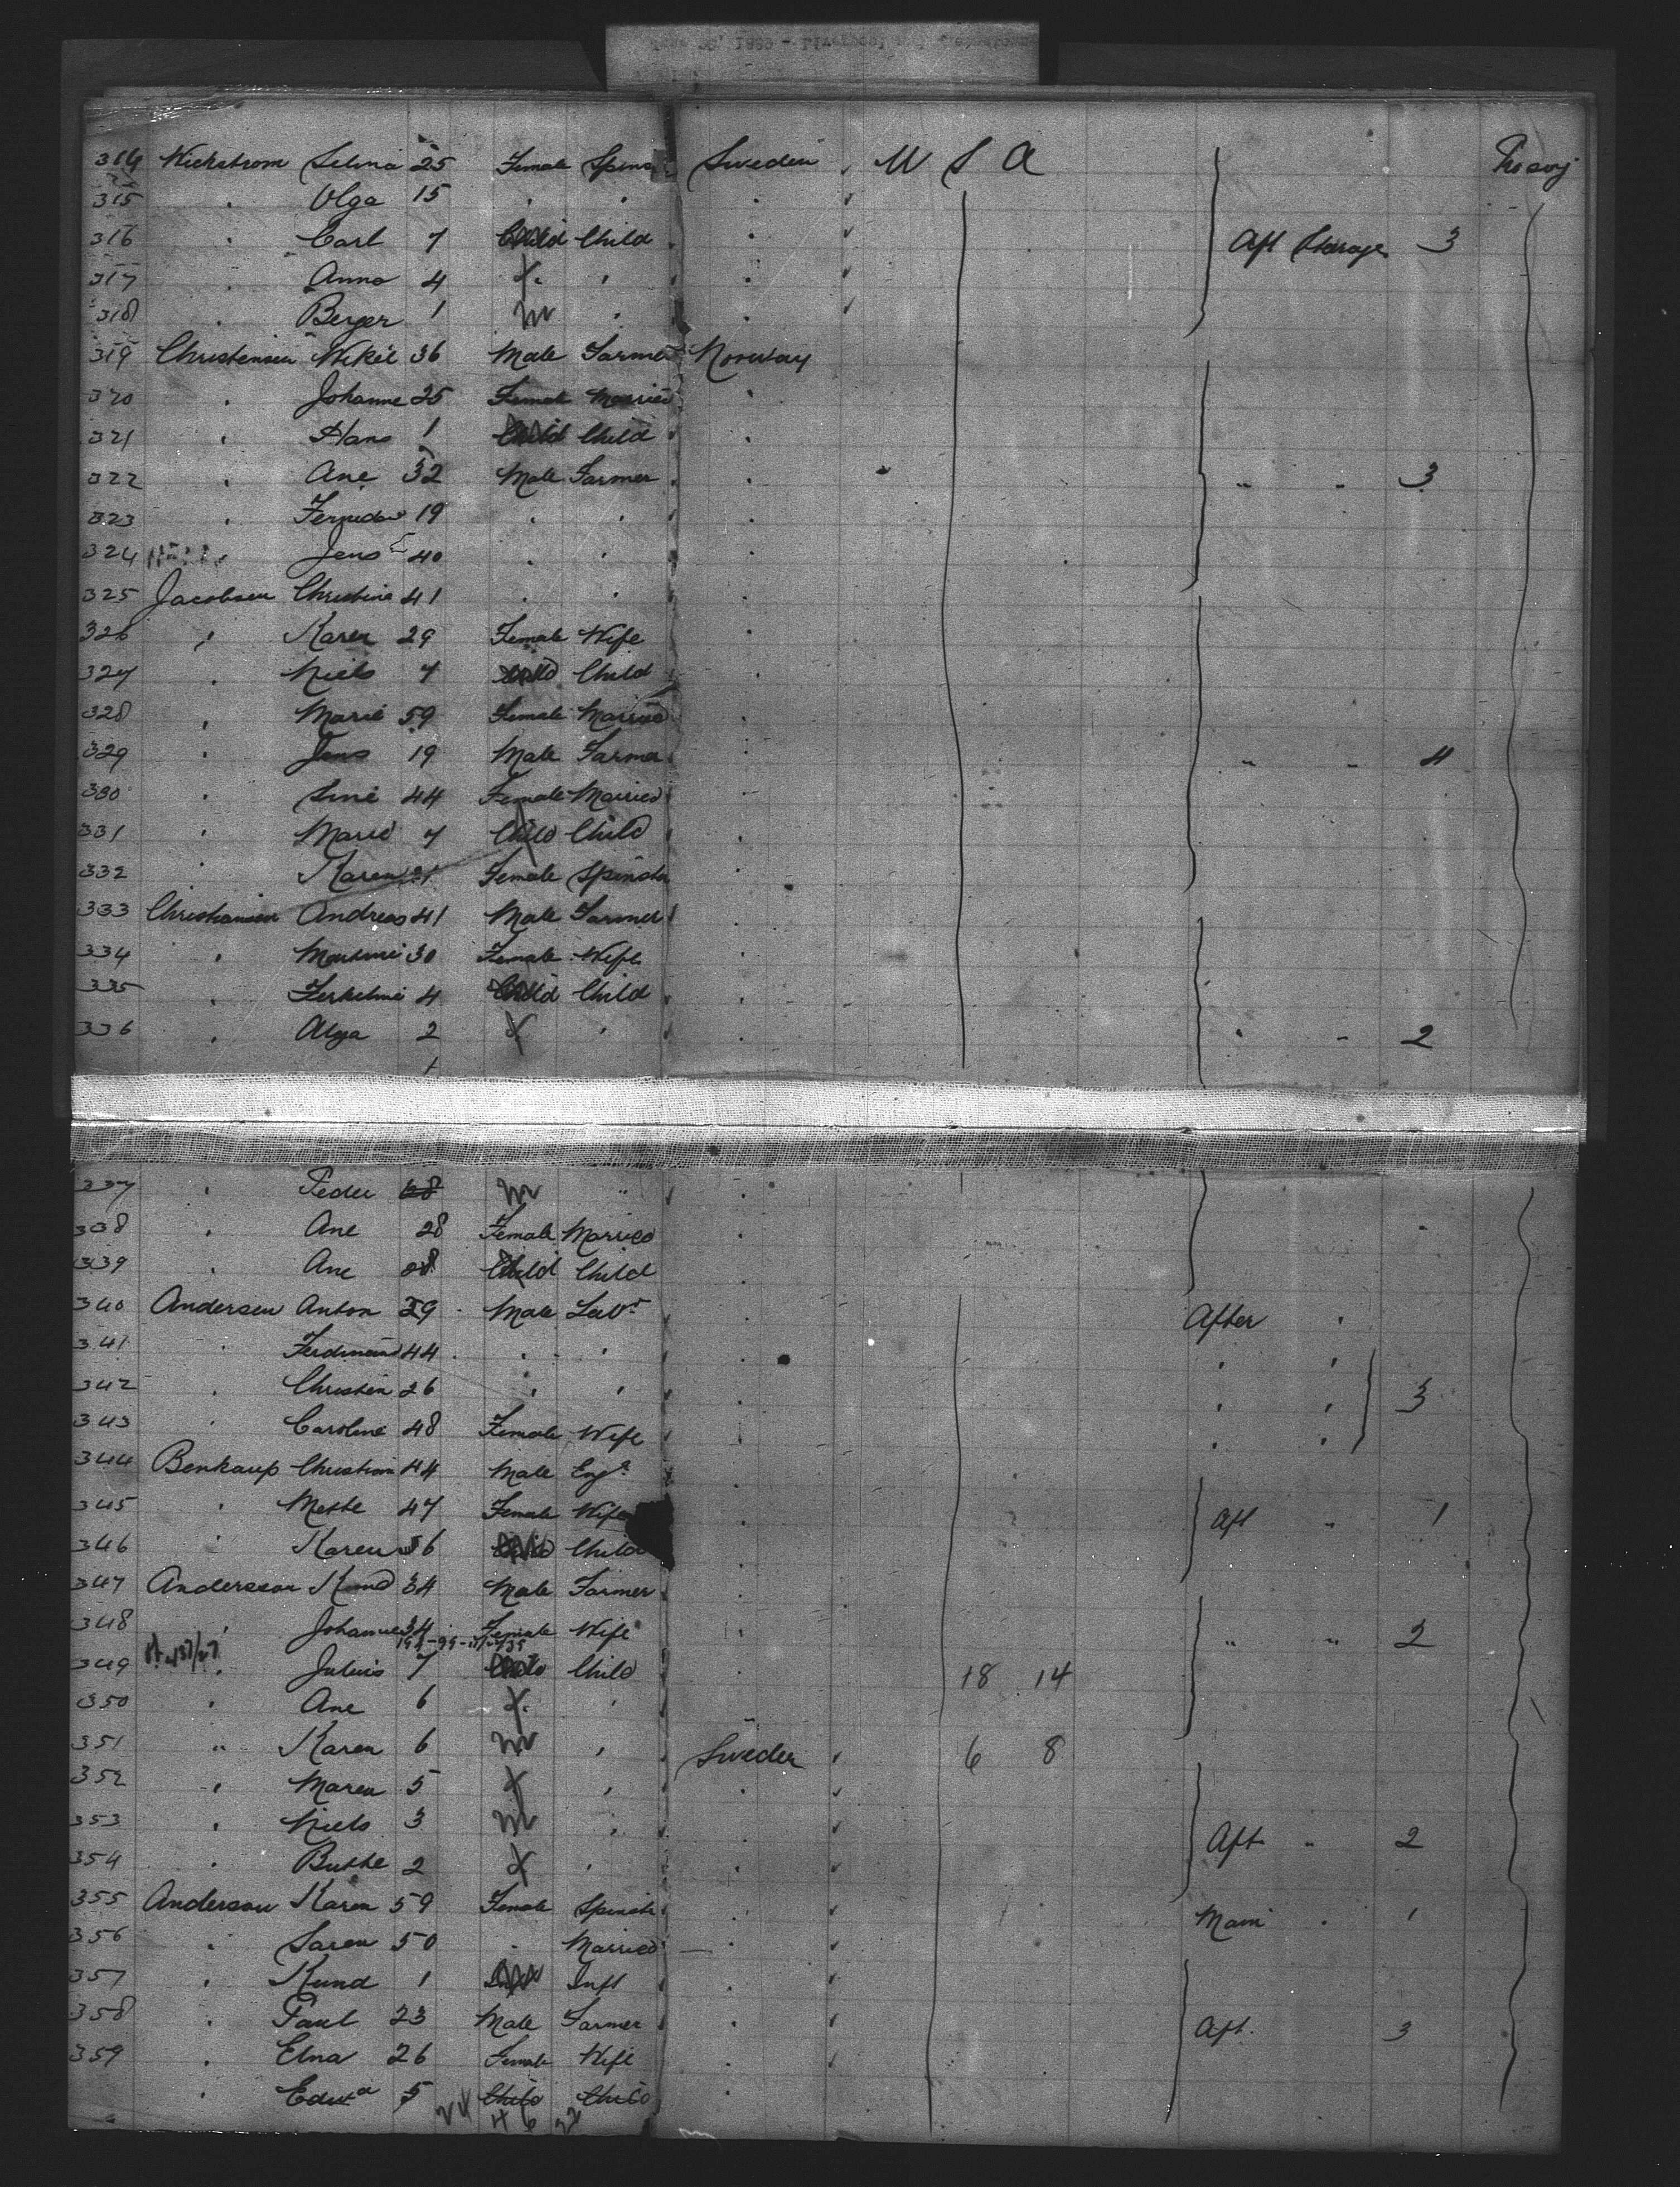 314 Wickstrom Selina 25 Female Spins Sweden U S A
315 " Olga 15 " " "
316 " Carl 7 Child Child " Aft Steerage 3
317 " Anna 4 f. " "
318 " Berger 1 m " "
319 Christensen Mikel 36 Male Farmer Norway
320 " Johanne 25 Female Married "
321 " Hans 1 Child Child "
322 " Ane 32 Male Farmer " " " 3
323 " 19 " " "
324 " Jens 40 " " "
325 Jacobsen Christine 41 " " "
326 " Karen 29 Female Wife "
327 " Niels 7 Child Child "
328 " Marie 59 Female Married "
329 " Jens 19 Male Farmer " " " 4
330 " Sine 44 Female Married "
331 " Marie 7 Child Child "
332 " Karen 21 Female Spinster "
333 Christiansen Andreas 41 Male Farmer "
334 " Martine 30 Female Wife "
335 " 4 Child Child "
336 " Olga 2 f " " " " 2
337 " Peder m " "
338 " Ane 28 Female Married "
339 " Ane Child Child "
340 Andersen Anton 29 Male Labr " After "
341 " Ferdinand 44 " " " " "
342 " Christen 26 " " " " " 3
343 " Caroline 48 Female Wife " " "
344 Benkaup Christian 44 Male Engr "
345 " Mette 47 Female Wife " Aft " 1
346 " Karen Child Child "
347 Anderssen Knud 34 Male Farmer "
348 " Johanne 34 Female Wife " " " 2
349 " Julius 7 Child Child " 18 14
350 " Ane 6 f. "
351 " Karen 6 m " Sweden 6 8
352 " Maren 5 f " "
353 " Niels 3 m " " Aft " 2
354 " 2 f " "
355 Anderson Karen 59 Female Spinster " Main " 1
356 " Saren 50 " Married "
357 " Kund 1 Inft Inft "
358 " Paul 23 Male Farmer " Aft. 3
359 " Elna 26 Female Wife "
" Edwa 5 Child Child "
24 4 6 22